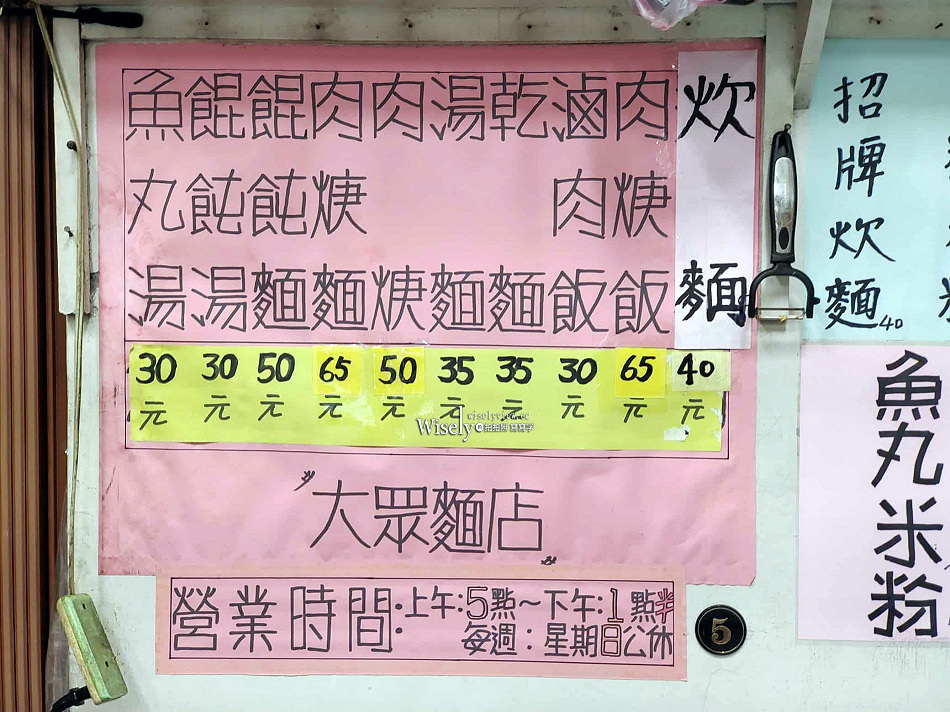 炊麵 40元
肉焿飯 65元
滷肉飯 30元
乾麵 35元
湯麵 35元
肉焿 50元
肉焿麵 65元
餛飩麵 50元
餛飩湯 30元
魚丸湯 30元
〞大眾麵店〞
營業時間:上午:5點~下午:1點半
每週:星期日公休
5
招牌炊麵40
魚丸米粉
wiselyview.cc
Wisely拍拍照寫寫字